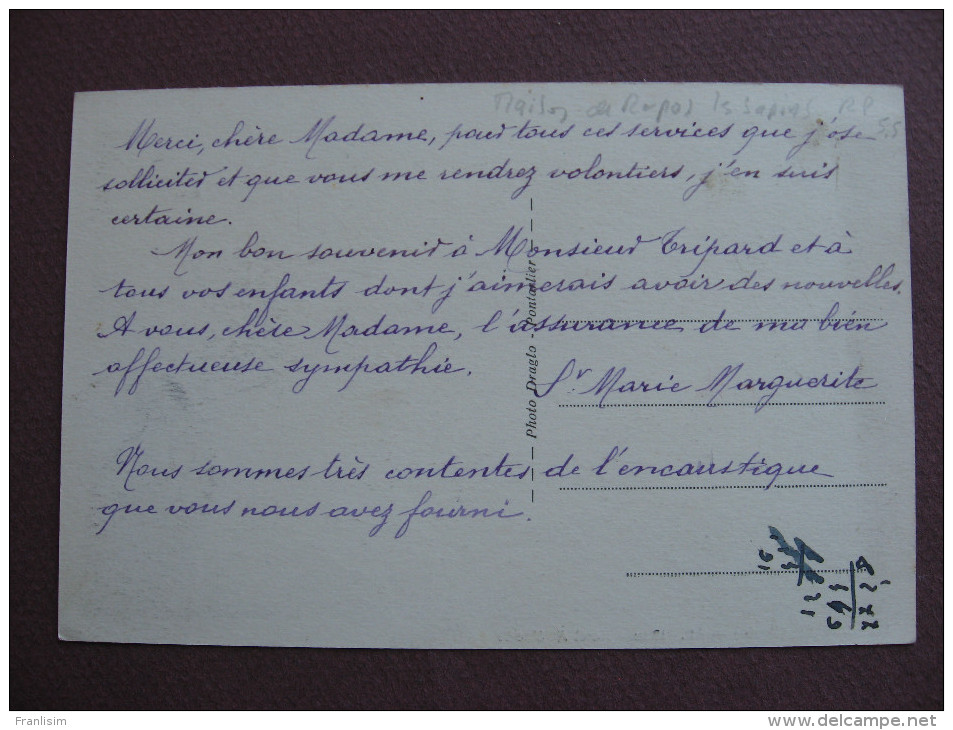 Maison de Repos les Sapins RP
Merci, chère Madame, pour tous ces services que j'ose
solliciter et que vous me rendrez volontiers, j'en suis
certaine.
Mon bon souvenir à Monsieur Tripard et à
tous vos enfants dont j'aimerais avoir des nouvelles.
A vous, chère Madame, l'assurance de ma bien
affectueuse sympathie.
Sr Marie Marguerite
Nous sommes très contentes de l'encaustique
que vous nous avez fourni.
Photo Draglo - Pontarlier
Franlisim
www.delcampe.net